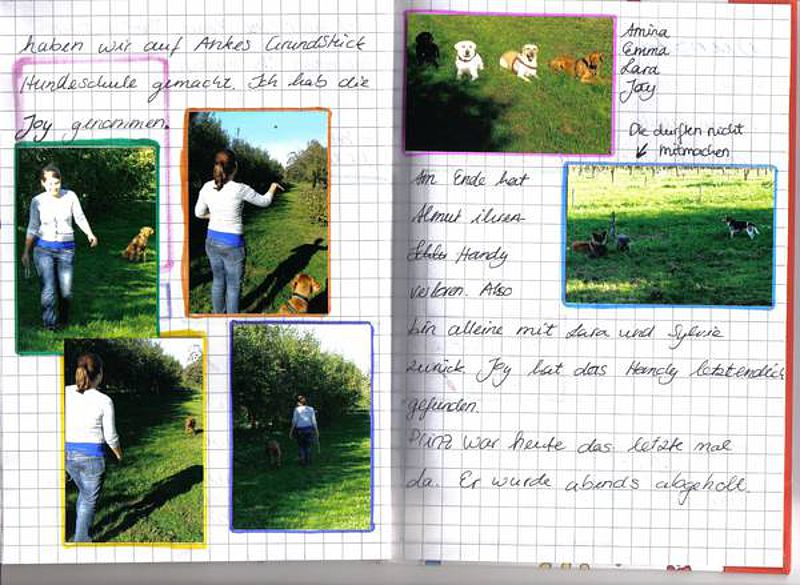 haben wir auf Ankes Grundstück
Hundeschule gemacht. Ich hab die
Joy genommen.
Amina
Emma
Lara
Joy
Die durften nicht
mitmachen
Am Ende hat
Almut ihren
Handy
verloren. Also
bin alleine mit Lara und Sylvie
zurück. Joy hat das Handy letztendlich
gefunden.
Prinz war heute das letzte mal
da. Er wurde abends abgeholt.